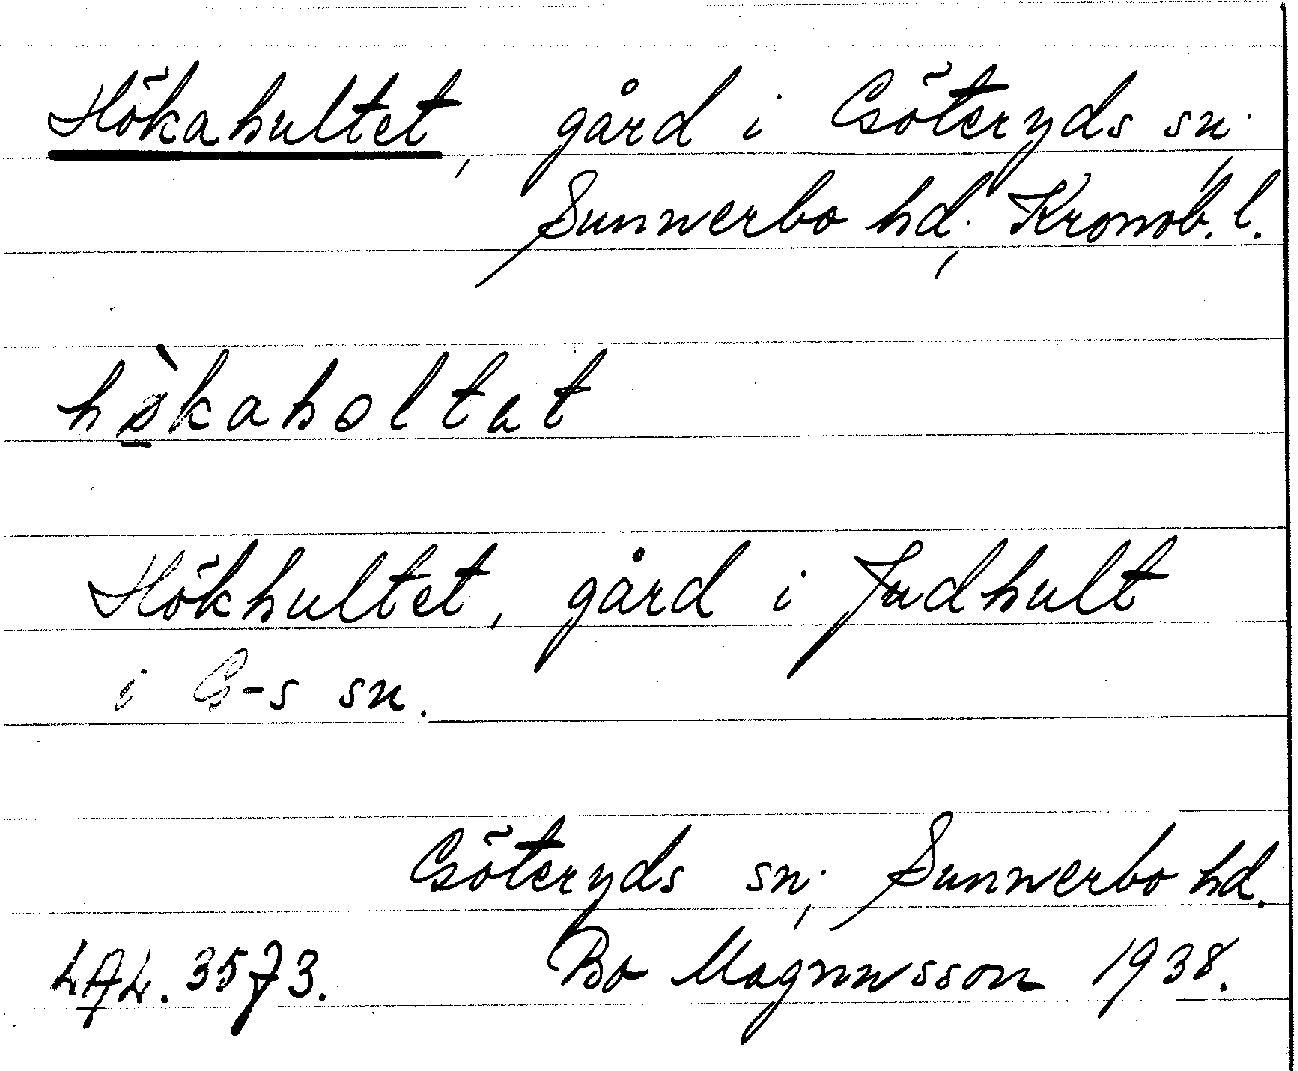 Hökahultet, gård i Göteryds sn.,
Sunnerbo hd., Kronob. l.
hö̀kahọltat
Hökhultet, gård i Judhult
i G-s sn.
Göteryds sn., Sunnerbo hd.
LAL. 3573. Bo Magnusson 1938.